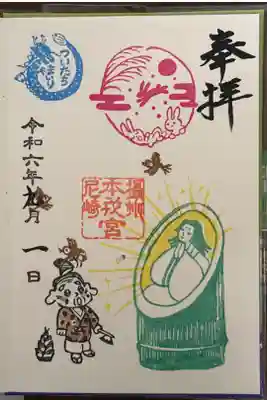 奉拝
ついたち
まいり
本戎宮
尼崎
令和六年九月一日